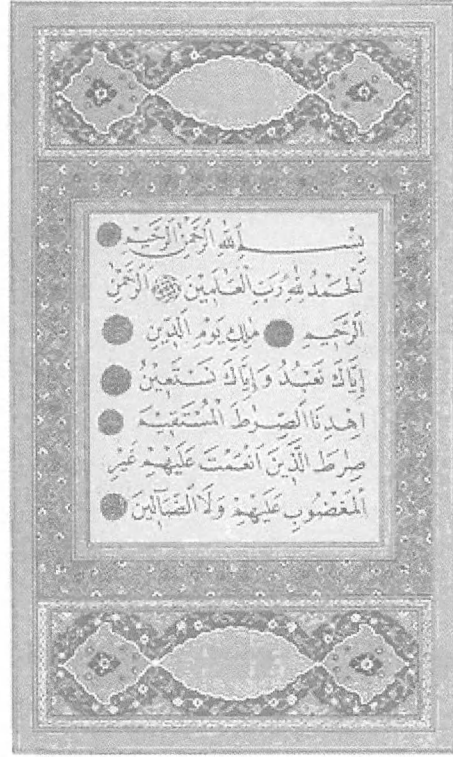 بِسْمِ اللهِ الرَّحْمٰنِ الرَّحِيمِ
اَلْحَمْدُ لِلهِ رَبِّ الْعَالَمِينَ اَلرَّحْمٰنِ
الرَّحِيمِ مٰلِكِ يَوْمِ الدِّينِ
اِيَّاكَ نَعْبُدُ وَاِيَّاكَ نَسْتَعِينُ
اِهْدِنَا الصِّرَاطَ الْمُسْتَقِيمَ
صِرَاطَ الَّذِينَ اَنْعَمْتَ عَلَيْهِمْ غَيْرِ
الْمَغْضُوبِ عَلَيْهِمْ وَلَا الضَّٓالِّينَ